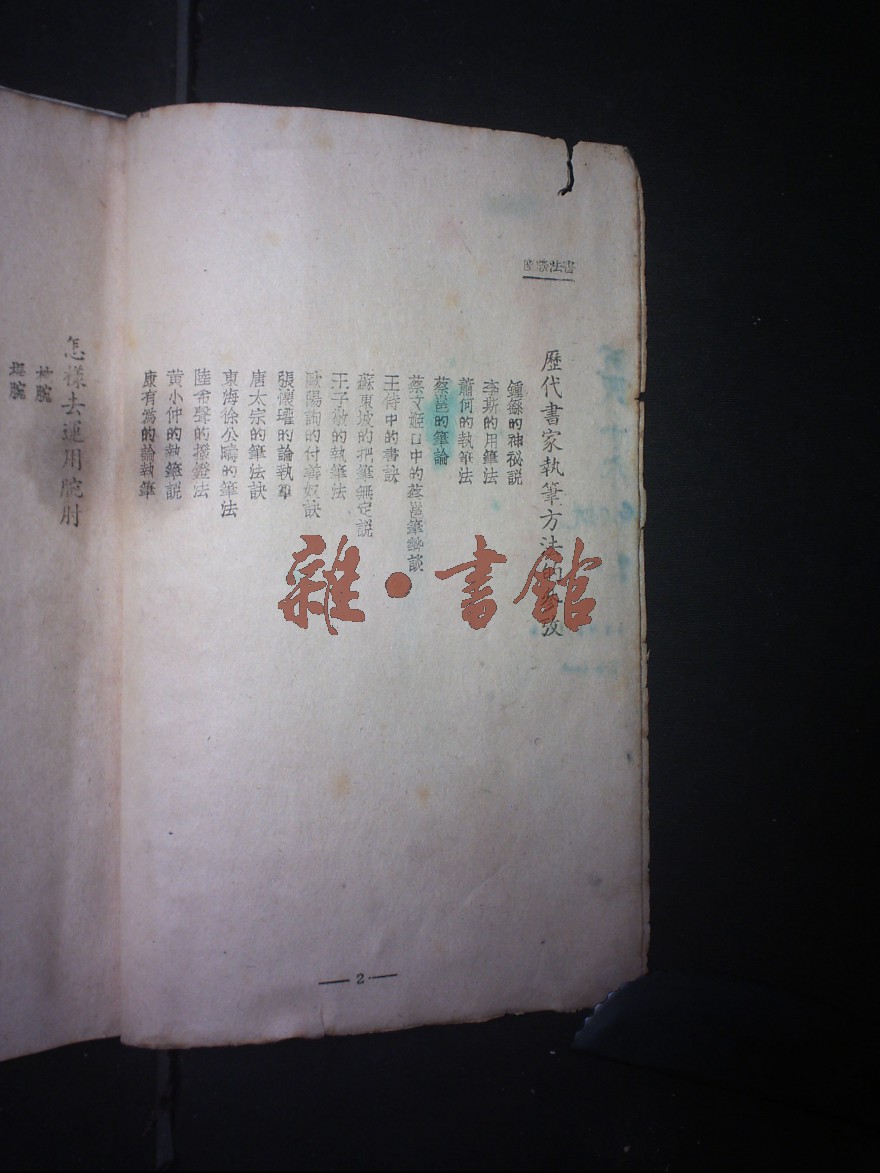 書法
歷代書家執筆方法的考
鍾繇的神秘説
李斯的用筆法
蕭何的執筆法
蔡邕的筆論
蔡文姬口中的蔡邕筆勢談
王侍中的書訣
蘇東坡的把筆無定説
王子敬的執筆法
歐陽詢的付善奴訣
張懷瓘的論執筆
唐太宗的筆法訣
東海徐公疇的筆法
陸希聲的撥鐙法
黃小仲的執筆説
康有為的論執筆
— 2 —
怎樣去運用腕肘
枕腕
雜·書館